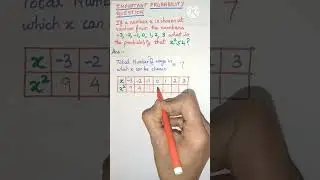 IMPORTANT PROBABILITY
QUESTION
If a number x is chosen at
random from the numbers
-3, -2, -1, 0, 1, 2, 3 what is
the probability that x² ≤ 4?
Ans:-
Total Number of ways in
which x can be chosen = 7
x -3 -2 -1 0 1 2 3
x² 9 4 1
7
x -2 2 3
x² 9 4